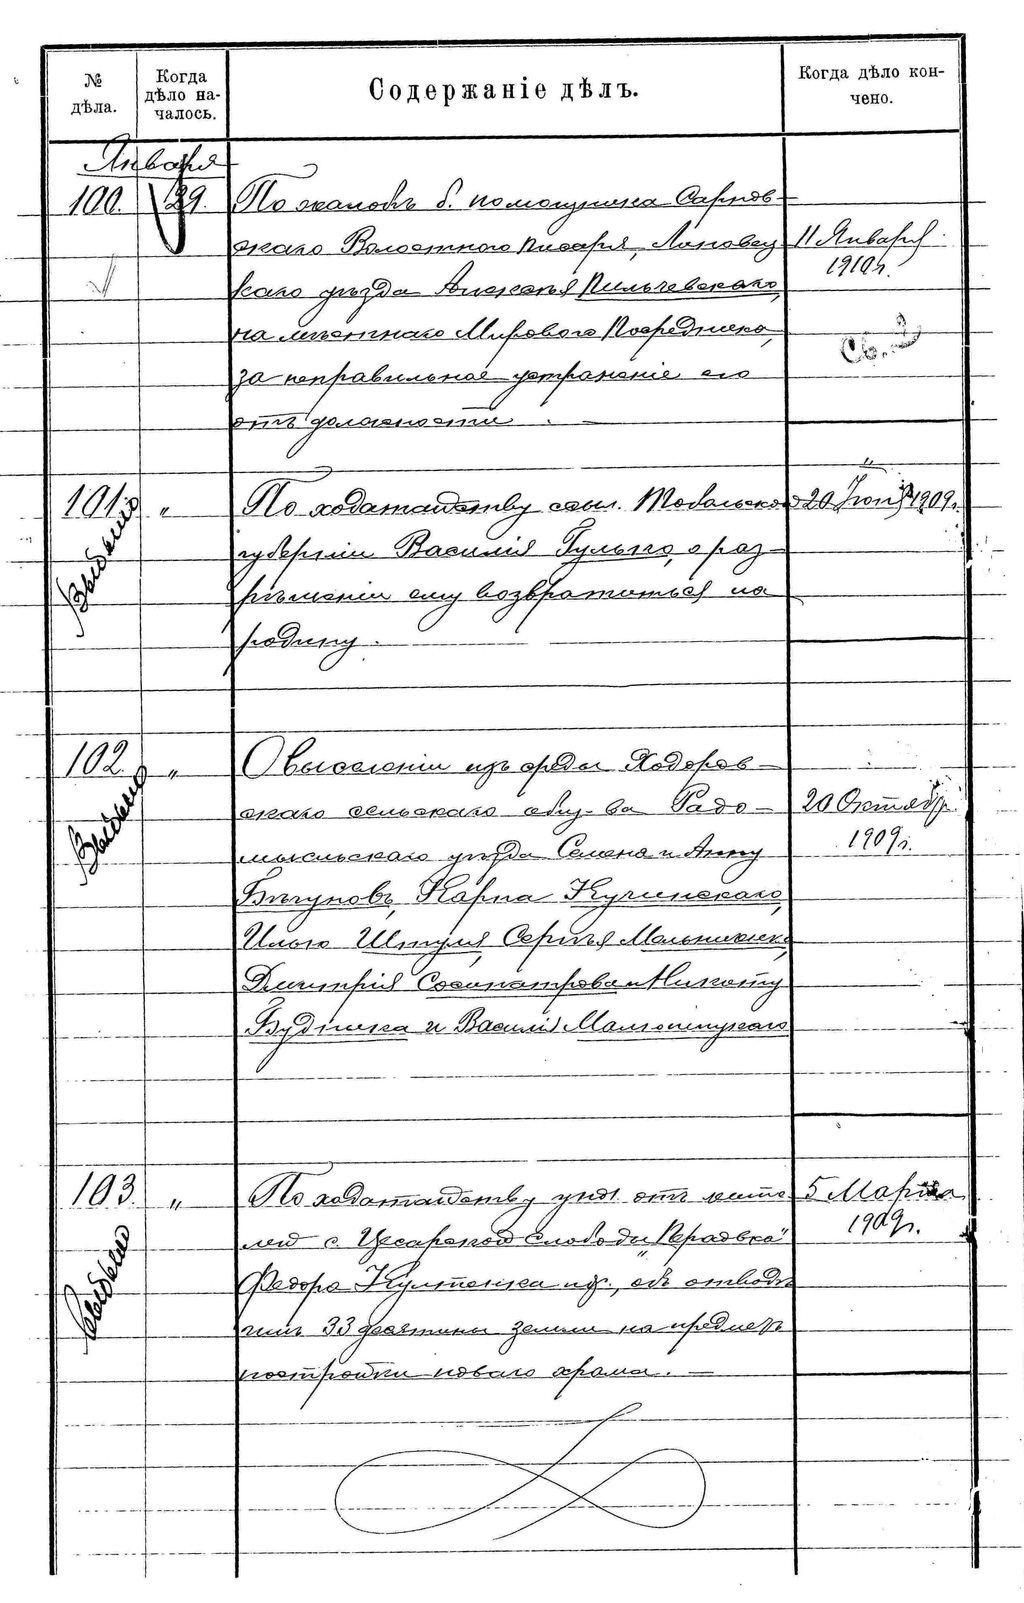 № дѣла.
Когда дѣло началось.
Содержаніе дѣлъ.
Когда дѣло кончено.
Января
100. 29. По жалобѣ б. помощника Сарнов-
скаго Волостного писаря, Липовец-
каго уѣзда Алексѣя Пильчевскаго,
на мѣстнаго Мирового Посредника,
за неправильное устраненіе его
отъ должности.
11 Января
1910 г.
Св. 3
101 " По ходатайству ссыл. Тобольской
губерніи Василія Гулько, о раз-
рѣшеніи ему возвратиться на
родину.
20 Іюня 1909 г.
Выбыло
102. " О выселеніи изъ среды Ходоров-
скаго сельскаго общ-ва Радо-
мысльскаго уѣзда Семена и Анну
Бѣгуновъ, Карпа Кучинскаго,
Илью Шпуля, Сергѣя Мельниченко,
Дмитрія Сосипатрова, Никиту
Будника и Василія
20 Октября
1909 г.
Выбыло
103. " По ходатайству упол. отъ жите-
лей с. Цесарской Слободы
Федора на отводѣ
имъ 33 десятины земли на предметъ
постройки новаго храма.
5 Марта
1909 г.
Выбыло